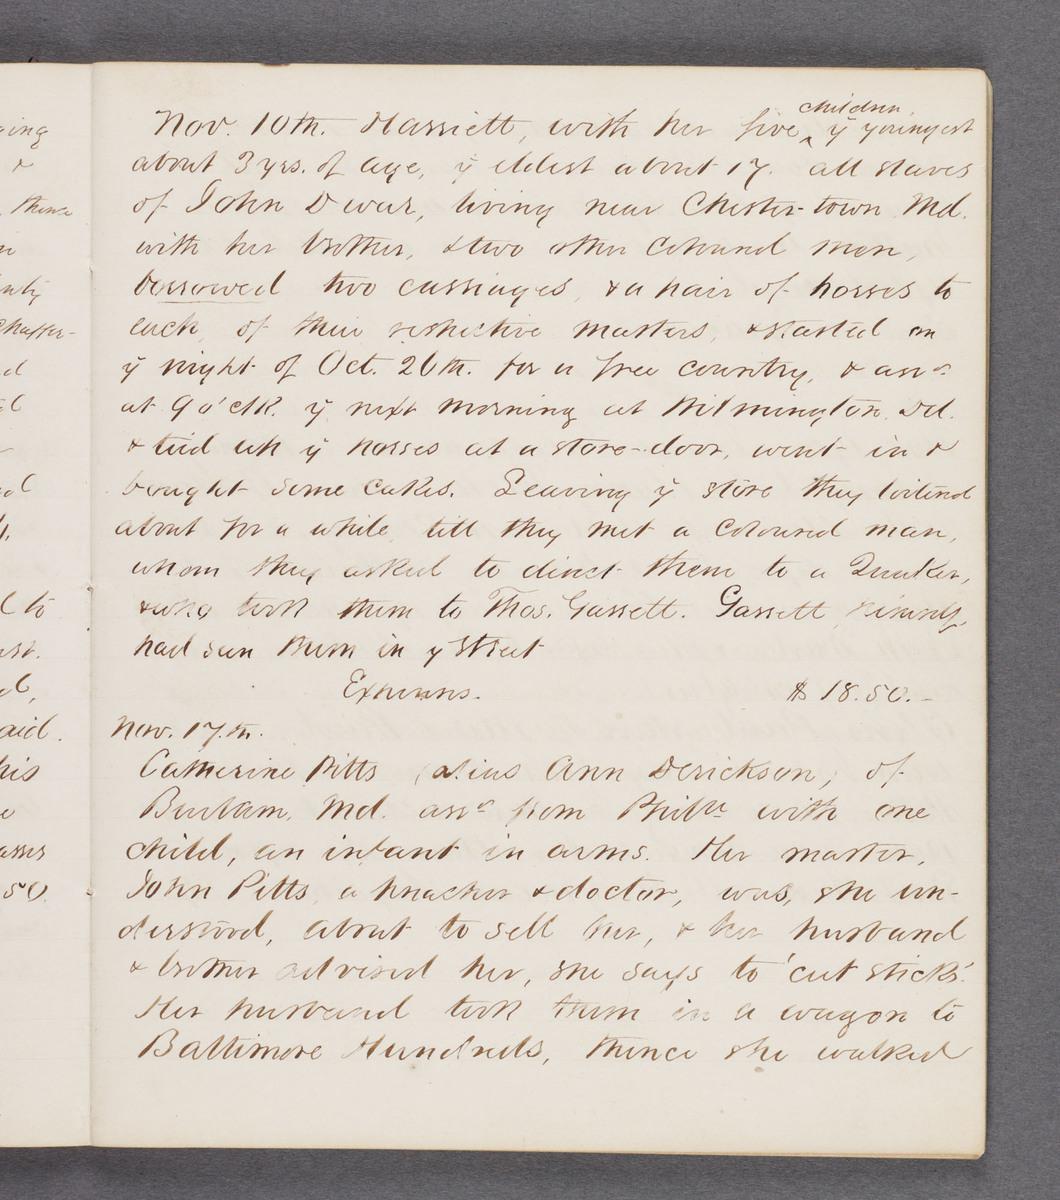 ging
&
thence
n
Chaffer-
d
d to
ust.
d,
aid.
his
e
asses
50.
Nov. 10th. Harriett, with her five ^children, ÿ youngest
about 3 yrs. of age, ÿ eldest about 17. all slaves
of John Dwar, living near Chester-town Md.
with her brother, & two other coloured men,
borrowed two carriages, & a pair of horses to
each, of their respective masters, & started on
ÿ night of Oct. 26th. for a free country, & arrd.
at 9 o'clk. ÿ next morning at Wilmington Del.
& tied up ÿ horses at a store-door, went in &
bought some cakes. Leaving ÿ store they loitered
about for a while, till they met a coloured man,
whom they asked to direct them to a Quaker,
& who took them to Thos. Garrett. Garrett himself,
had seen them in ÿ street
Expenses. $ 18.50.-
Nov. 17.th.
Catherine Pitts (alias Ann Derickson,) of
Burlam, Md. arrd from Philda with one
child, an infant in arms. Her master,
John Pitts, a preacher & doctor, was, she un-
derstood, about to sell her, & her husband
& brother advised her, she says to 'cut sticks.'
Her husband took them in a wagon to
Baltimore Hundreds, thence she walked